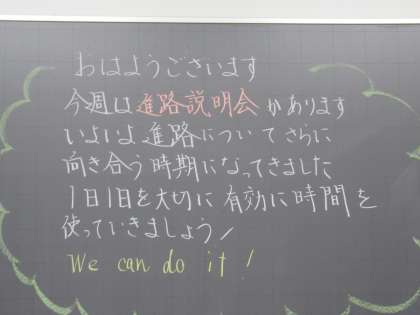 おはようございます
今週は進路説明会があります
いよいよ進路についてさらに
向き合う時期になってきました
1日1日を大切に有効に時間を
使っていきましょう!
We can do it!